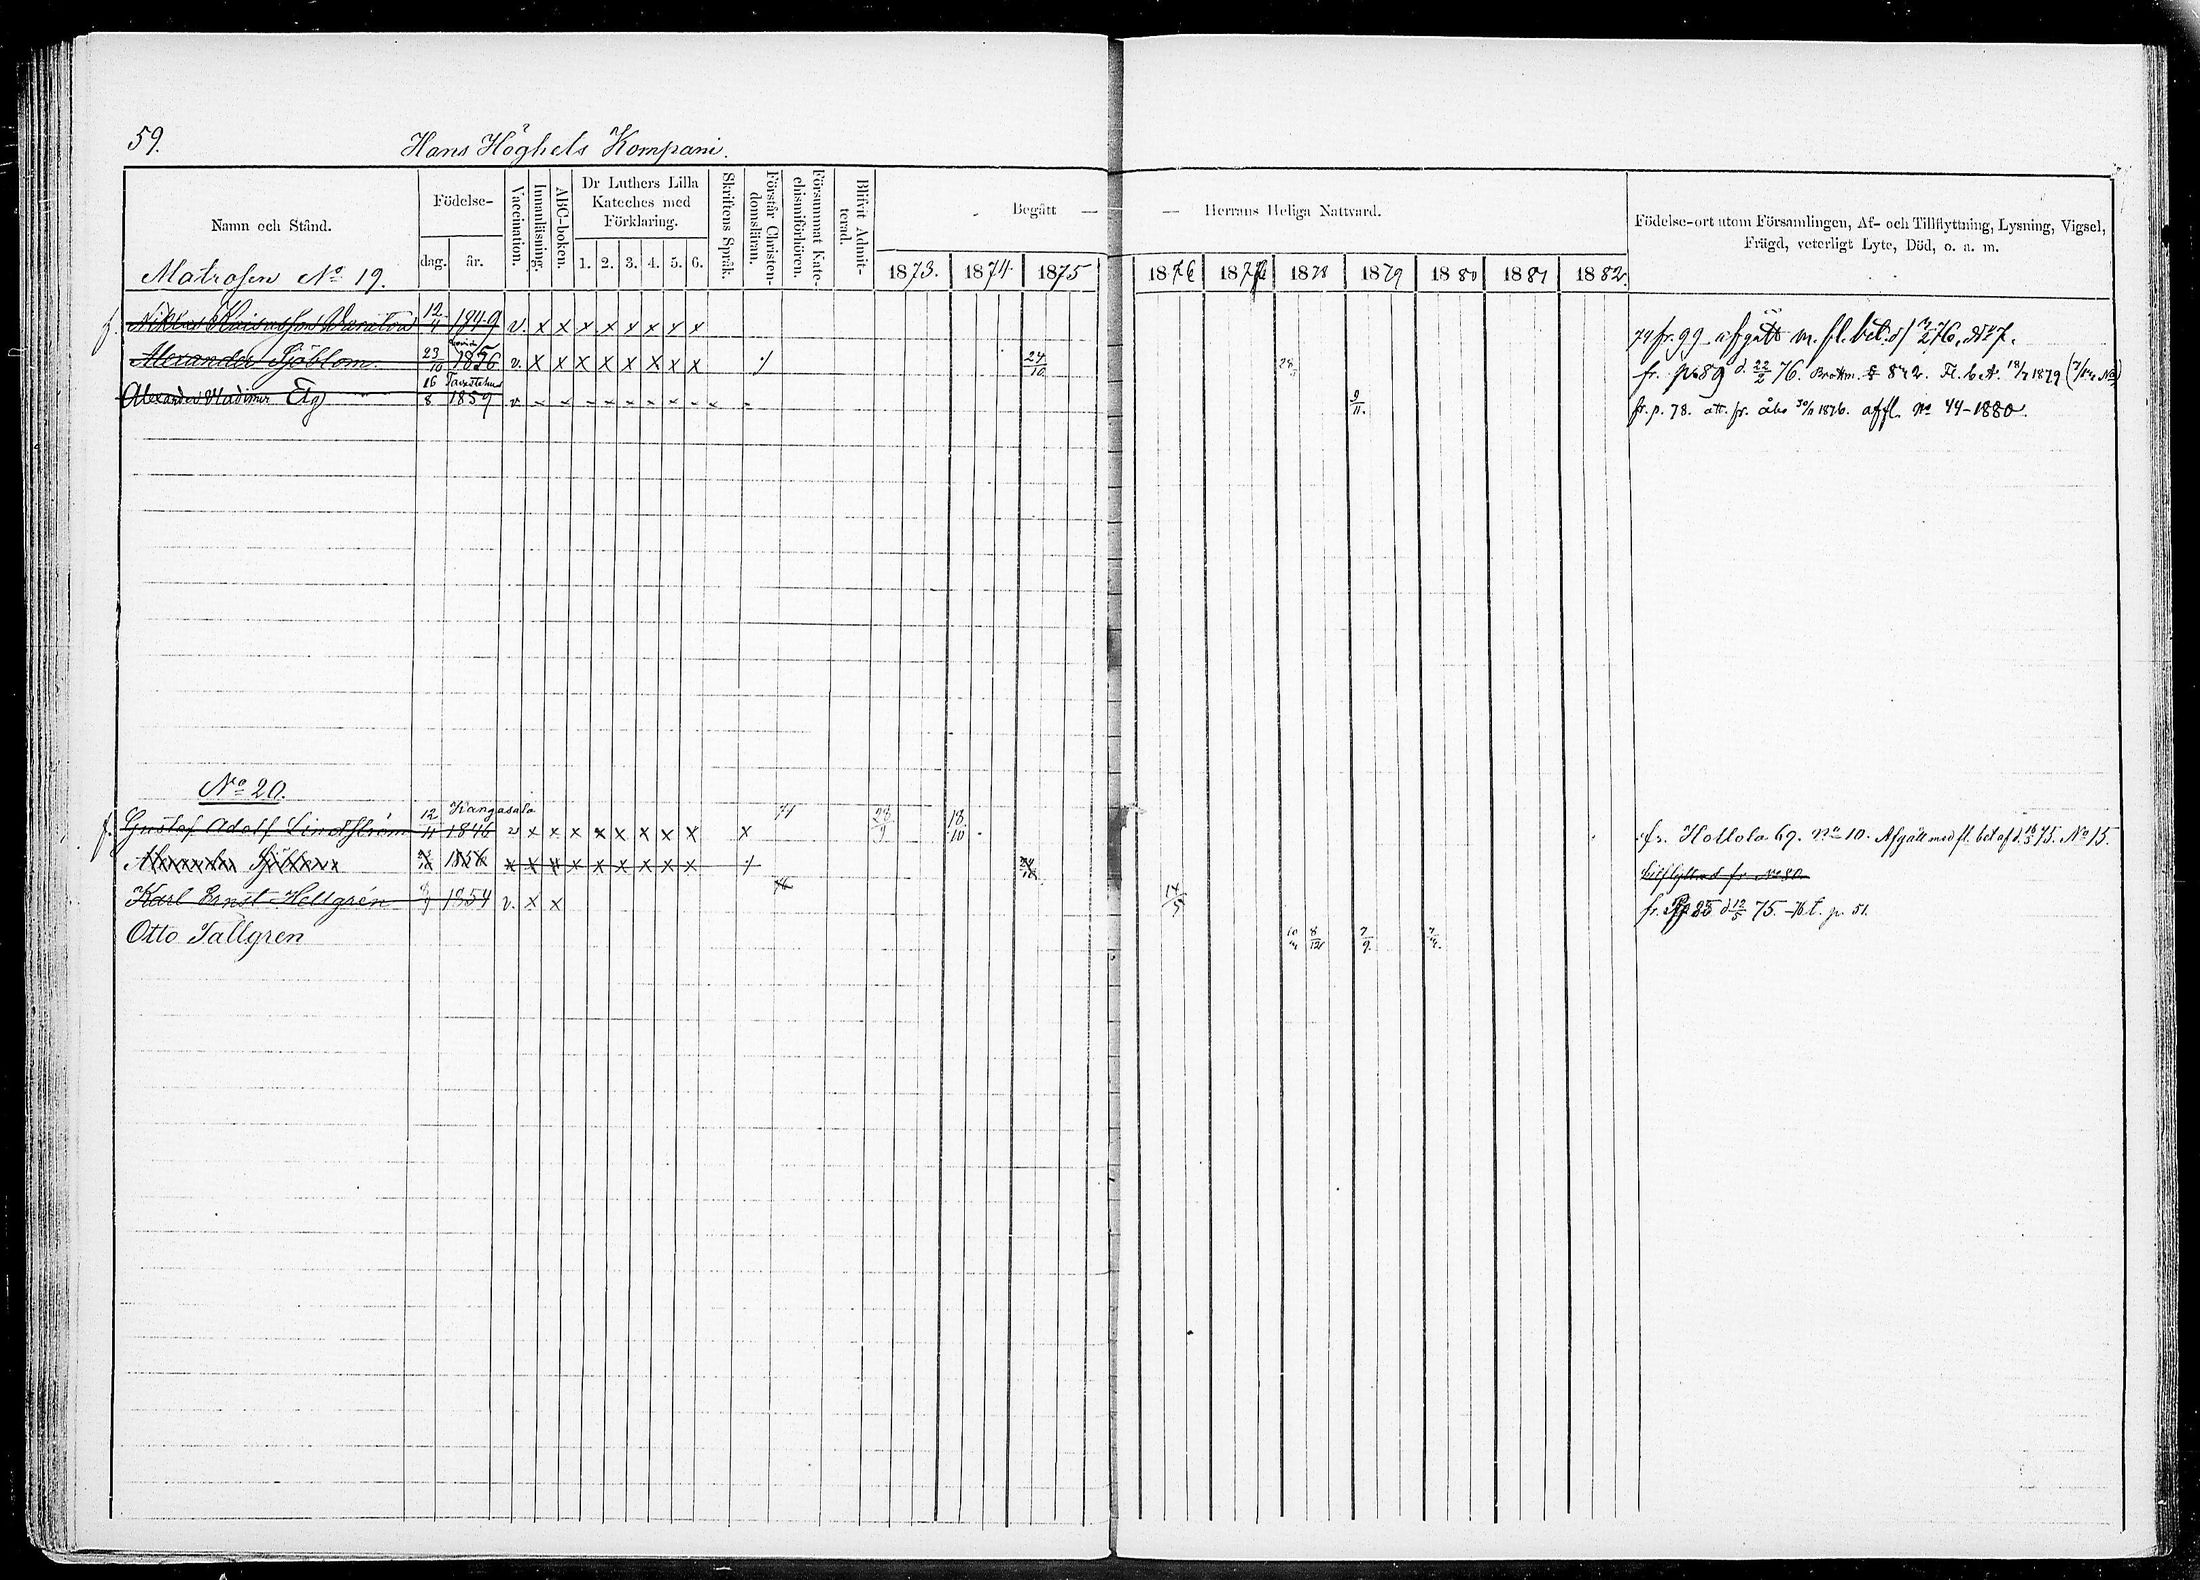 59.
Hans Höghels Kompani.
Namn och Stånd.
Födelse-
dag.
år.
Vaccination.
Innanläsning.
ABC-boken.
Dr Luthers Lilla
Kateches med
Förklaring.
1. 2. 3. 4. 5. 6.
Skriftens Språk.
Förstår Christen-
domsläran.
Försummat Kate-
chismiförhören.
Blifvit Admit-
terad.
Begått — — Herrans Heliga Nattvard.
1873. 1874. 1875 1876 1877 1878 1879 1880 1881 1882.
Födelse-ort utom Församlingen, Af- och Tillflyttning, Lysning, Vigsel,
Frägd, veterligt Lyte, Död, o. a. m.
Matrosen No 19.
f. Niklas 12/4 1849 v. x x x x x x x x 74 fr. 99 afgått m. fl. bet. 76. No 7.
Alexander Sjöblom. 23/10 1856 v. x x x x x x x x 24/10 28 fr. p. 89 d. 22/2 76. 1879
16/8 Tavastehus
Alexander Vladimir 1859 v 9/11. fr. p. 78. att. fr. åbo 30/ 1876. affl. No 44-1880.
No 20.
12/11 Kangasala
f. Gustaf Adolf Lindström 1846 v x x x x x x x x x 28/9 18/10 fr. Hollola 69. No 10. Afgått med fl. bet af d. 75. No 15.
Alexander Sjöblom 1856 x x x x x x x x x fr. No 80
Karl Ernst Hellgrén 1854 v. x x 14/5 fr. 85 d 12/5 75. p. 51.
Otto Tallgren 8/12 7/9